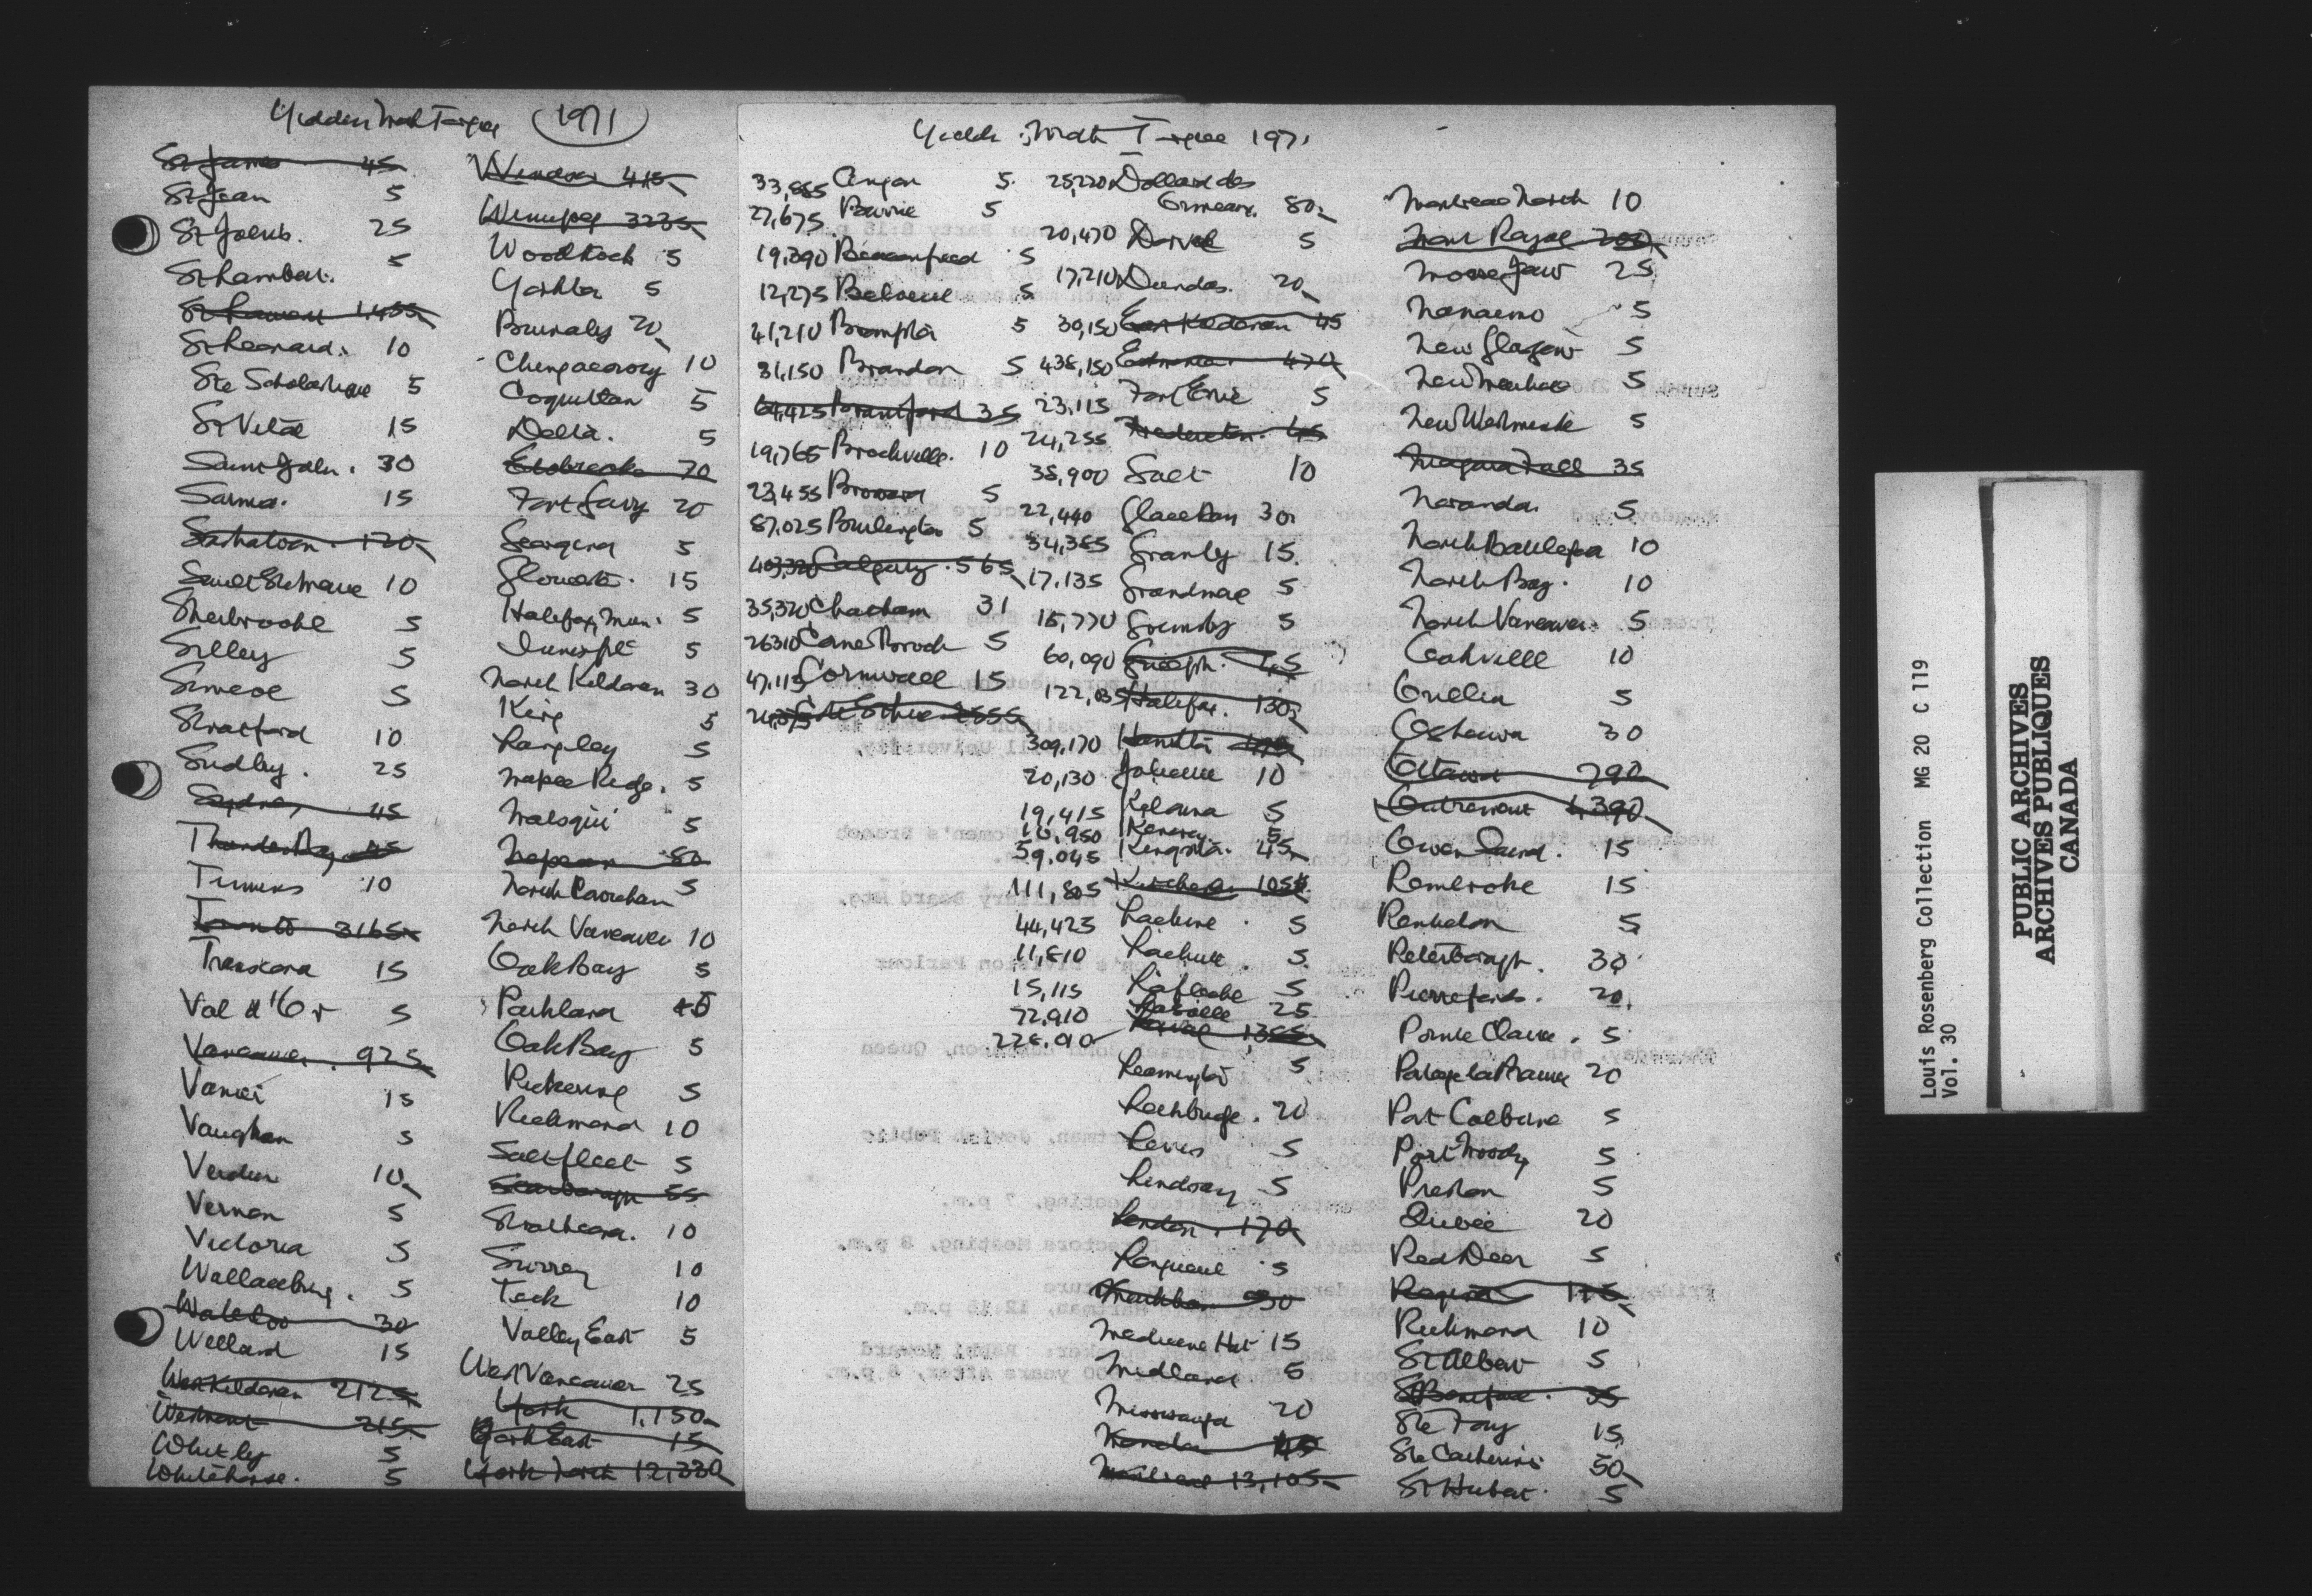 Yiddish Moth Tongue 1971
St James 45
St Jean 5
St Johns. 25
St Lambert. 5
St Laurent 1,455
St Leonard. 10
Ste Scholastique 5
St Vital 15
Saint John. 30
Sarnia. 15
Saskatoon. 120
Sault Ste Marie 10
Sherbrooke 5
Sillery 5
Simcoe 5
Stratford 10
Sudbury. 25
Sydney 45
Thunder Bay 45
Timmins 10
Toronto 3165
Transcona 15
Val d'Or 5
Vancouver. 925
Vanier 15
Vaughan 5
Verdun 10
Vernon 5
Victoria 5
Wallaceburg. 5
Waterloo 30
Welland 15
West Kildonan 2125
Westmount 215
Whitby 5
Whitehorse. 5
Windsor 415
Winnipeg 3235
Woodstock 5
Yorkton 5
Burnaby 20
Chinguacousy 10
Coquitlam 5
Delta. 5
Etobicoke 70
Fort Garry 20
Georgina 5
Gloucester. 15
Halifax, Mun. 5
Innisfil 5
North Kildonan 30
King 5
Langley 5
Maple Ridge. 5
Matsqui 5
Nepean 80
North Cowichan 5
North Vancouver 10
Oak Bay 5
Parkland
Oak Bay 5
Pickering 5
Richmond 10
Saltfleet 5
Scarborough 55
Strathcona. 10
Surrey 10
Teck 10
Valley East 5
West Vancouver 25
York 1,150
York East 15
York North 12,330
Yiddish Moth Tongue 1971
33,885 5
27,675 Barrie 5
19,390 Beaconsfield 5
12,275 Beloeil 5
41,210 Brampton 5
31,150 Brandon 5
64,425 Brantford 35
19,765 Brockville. 10
23,455 Brossard 5
87,025 Burlington 5
403,320 Calgary. 565
35,320 Chatham 31
26310 Corner Brook 5
47,115 Cornwall 15
Cote St Luc
25,220 Dollard des
Ormeaux. 80
20,470 Dorval 5
17,210 Dundas. 20
30,150 East Kildonan 45
438,150 Edmonton 470
23,115 Fort Erie 5
24,255 Fredericton. 45
38,900 Galt 10
22,440 Glace Bay 30
34,385 Granby 15
17,135 Grandmere 5
15,770 Grimsby 5
60,090 Guelph.
122,035 Halifax. 130
309,170 Hamilton
20,130 Joliette 10
19,415 Kelowna 5
10,950 Kenora 5
59,045 Kingston. 45
111,805 Kitchener 105
44,425 Lachine. 5
11,810 Lachute. 5
15,115 Lafleche 5
72,910 LaSalle 25
228,010 Laval
Leamington 5
Lethbridge. 20
Levis 5
Lindsay 5
London. 170
Longueuil 5
Markham
Medicine Hat 15
Midland 5
Mississauga 20
Moncton
Montreal 13,105
Montreal North 10
Mount Royal
Moose Jaw 25
Nanaimo 5
New Glasgow 5
New Market 5
New Westminster 5
Niagara Falls 35
Noranda 5
North Battleford 10
North Bay. 10
North Vancouver. 5
Oakville 10
Orillia 5
Oshawa 30
Ottawa 790
Outremont 4390
Owen Sound. 15
Pembroke 15
Penticton 5
Peterborough. 30
Pierrefonds. 20
Pointe Claire. 5
Portage la Prairie 20
Port Colborne 5
Port Moody 5
Preston 5
Quebec 20
Red Deer 5
Regina
Richmond 10
St Albert 5
St Boniface. 35
Ste Foy 15
St Catharines 50
St Hubert. 5
Louis Rosenberg Collection MG 20 C 119
Vol. 30
PUBLIC ARCHIVES
ARCHIVES PUBLIQUES
CANADA